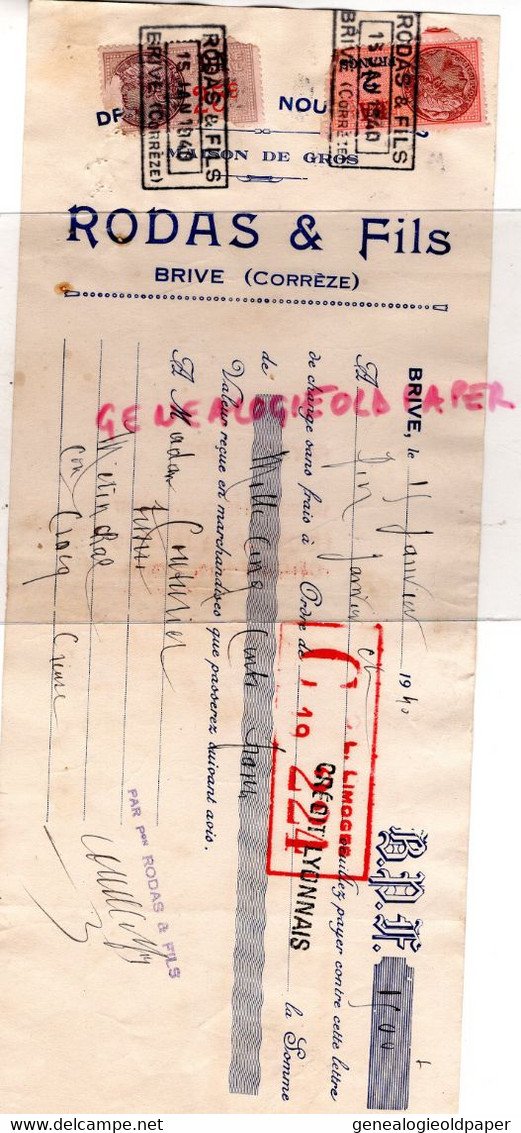 RODAS & FILS
15 JAN 1940
BRIVE (CORRÈZE)
RODAS & FILS
15 JAN 1940
BRIVE (CORRÈZE)
FRANCE
NOU
MAISON DE GROS
RODAS & Fils
BRIVE (CORRÈZE)
BRIVE, le 15 Janvier 1940
B.P.F. 1500
A fin Janvier ct veuillez payer contre cette lettre
de change sans frais à Ordre de CRÉDIT LYONNAIS la Somme
de Mille Cinq Cents francs
Valeur reçue en marchandises que passerez suivant avis.
A Madam Couturier
Merinchal
Crocq Creuse
C L. LIMOGES
19 224
PAR PON RODAS & FILS
GENEALOGIEOLDPAPER
delcampe.net
genealogieoldpaper